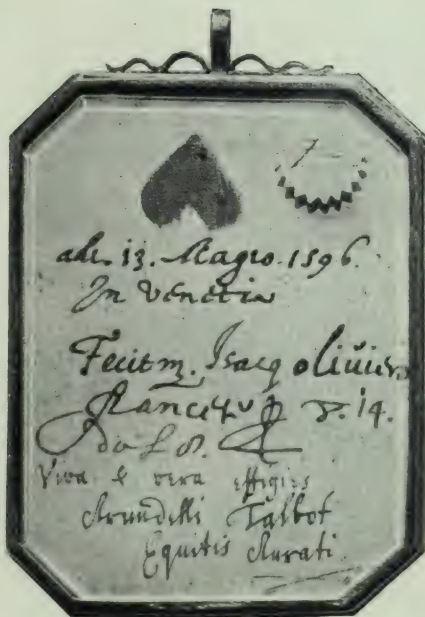 adi. 13. Magio. 1596.
In Venetia
Fecit m. Isacq oliuiero
Francese
Viva & vera effigies
Arundelli Talbot
Equitis Aurati